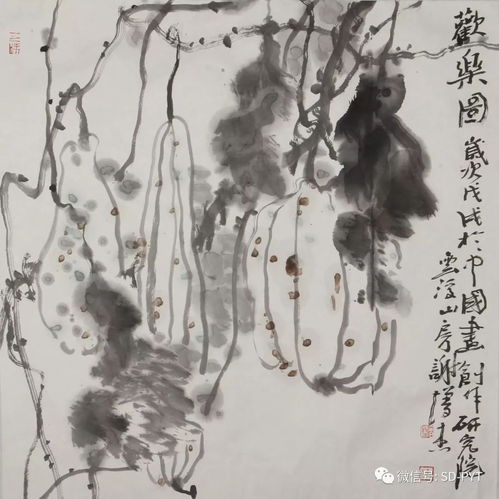 歡樂圖
歲次戊戌於中國畫創作研究院
雲深山房謝增杰
微信号: SD-PYT